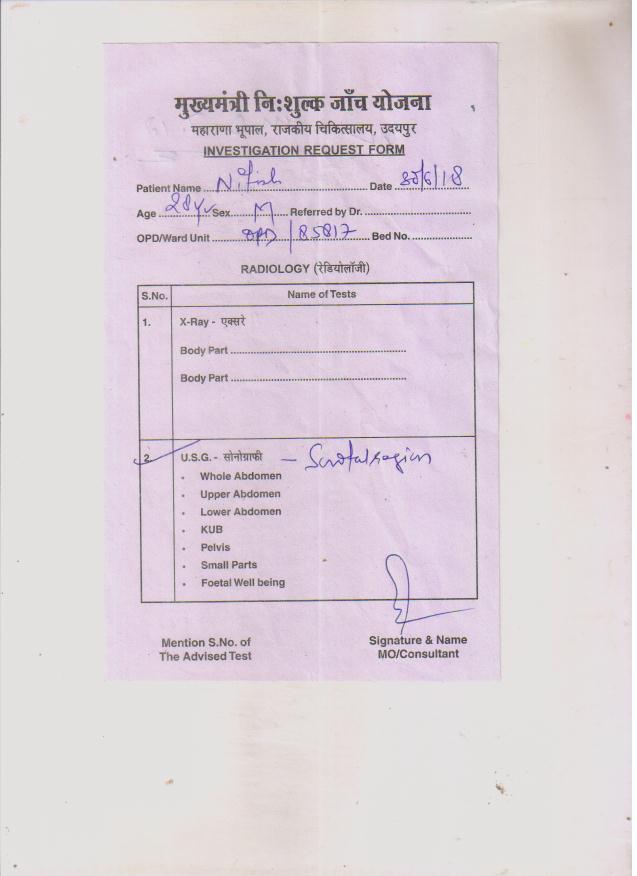 मुख्यमंत्री निःशुल्क जाँच योजना
महाराणा भूपाल, राजकीय चिकित्सालय, उदयपुर
INVESTIGATION REQUEST FORM
Patient Name ... Nitish ... Date ... 30/6/18
Age ... 28 Yr Sex ... M ... Referred by Dr. ...
OPD/Ward Unit ... OPD / 85817 ... Bed No. ...
RADIOLOGY (रेडियोलॉजी)
S.No. Name of Tests
1. X-Ray - एक्सरे
Body Part ...
Body Part ...
2. U.S.G. - सोनोग्राफी — Scrotal region
• Whole Abdomen
• Upper Abdomen
• Lower Abdomen
• KUB
• Pelvis
• Small Parts
• Foetal Well being
Mention S.No. of Signature & Name
The Advised Test MO/Consultant